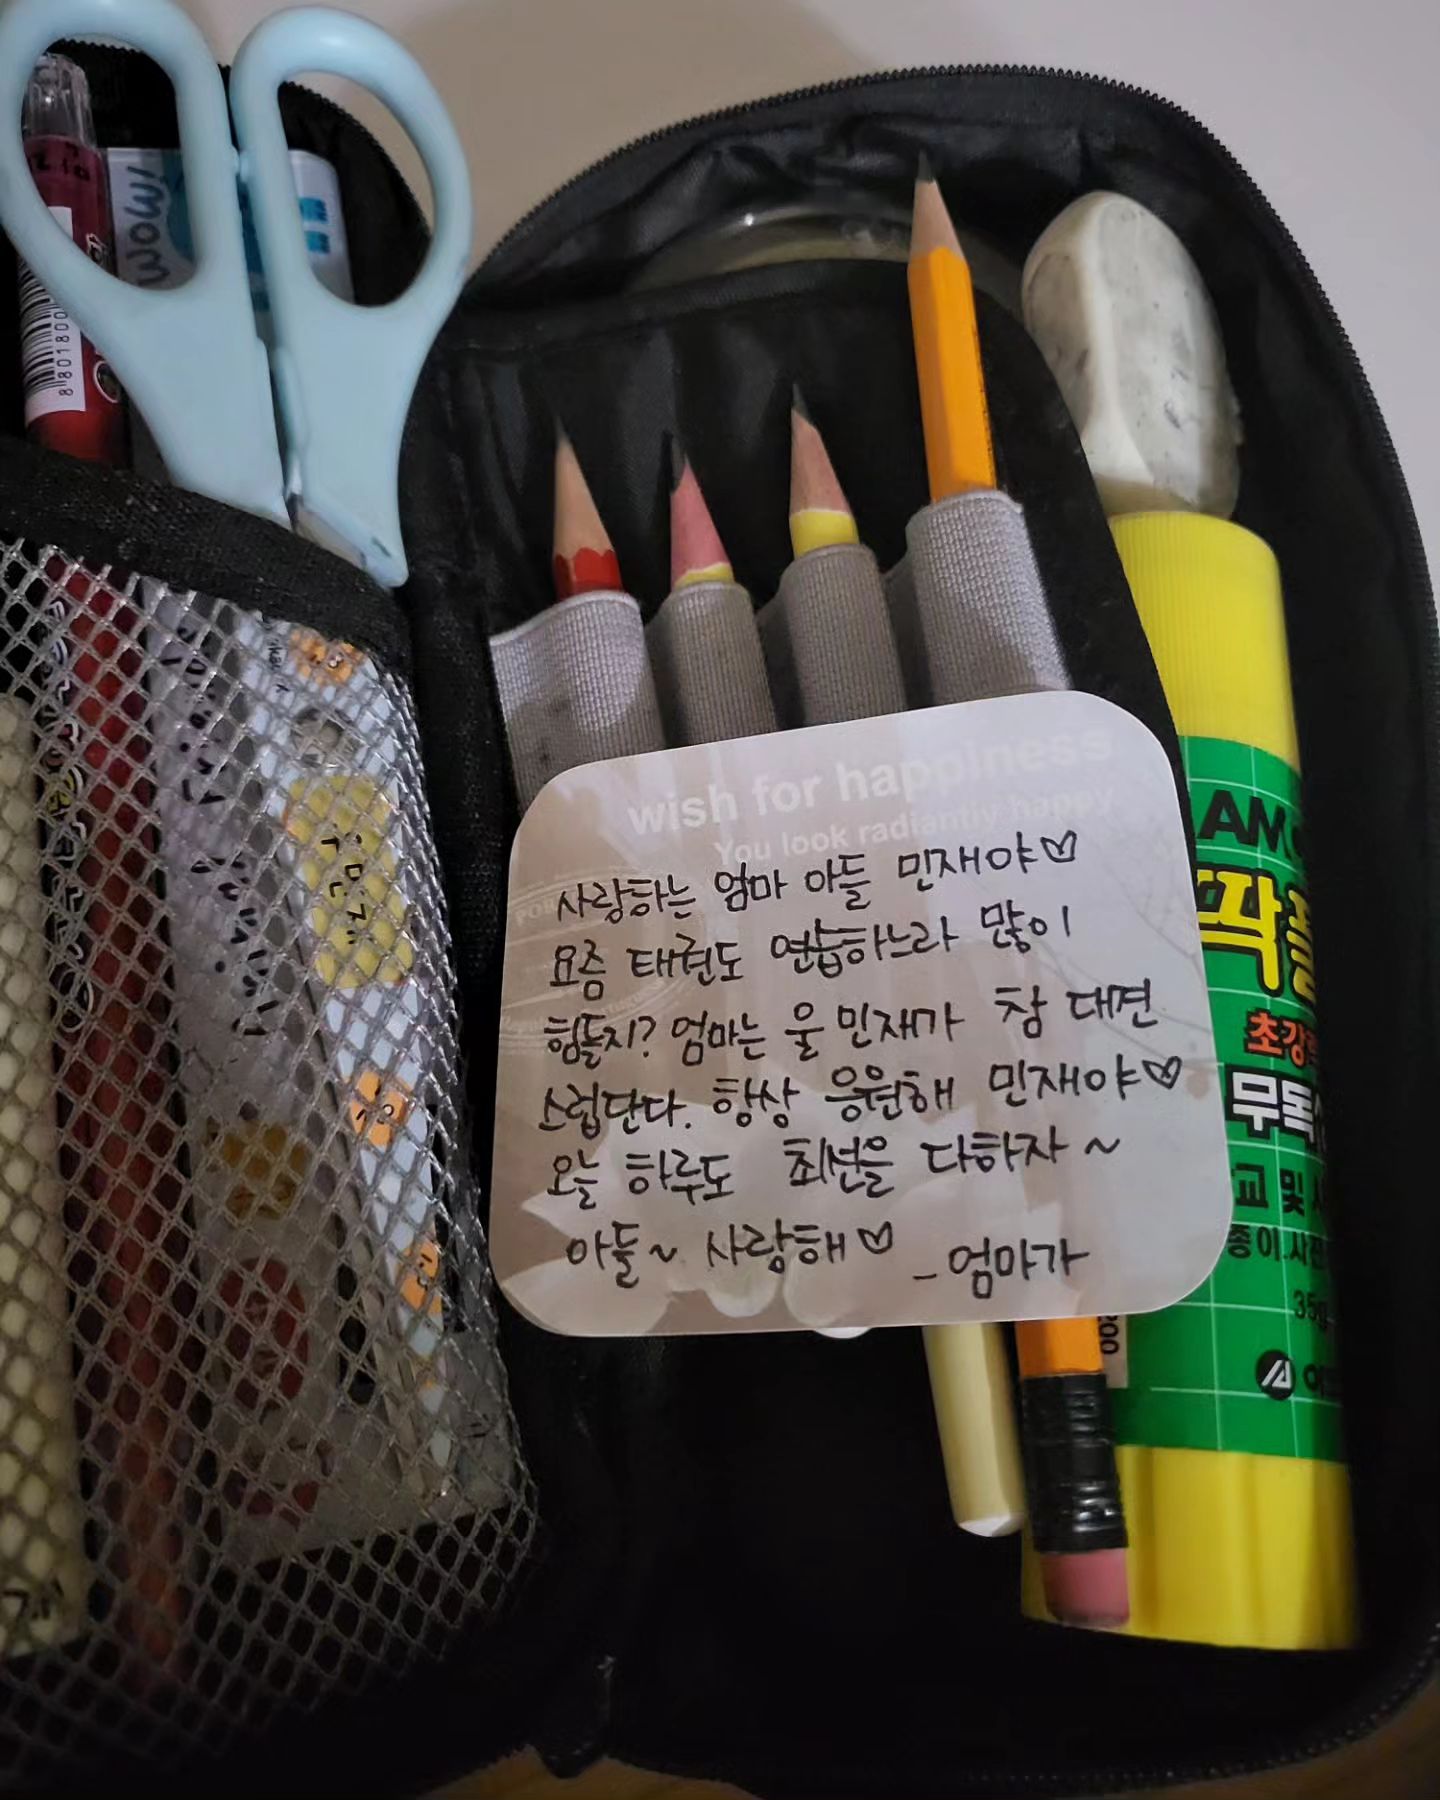 WOW!
wish for happiness
You look radiantly happy
사랑하는 엄마 아들 민재야♡
요즘 태권도 연습하느라 많이
힘들지? 엄마는 울 민재가 참 대견
스럽단다. 항상 응원해 민재야♡
오늘 하루도 최선을 다하자~
아들~ 사랑해♡ -엄마가
AM
딱풀
초강력
무독
교 및
종이.사진
35g